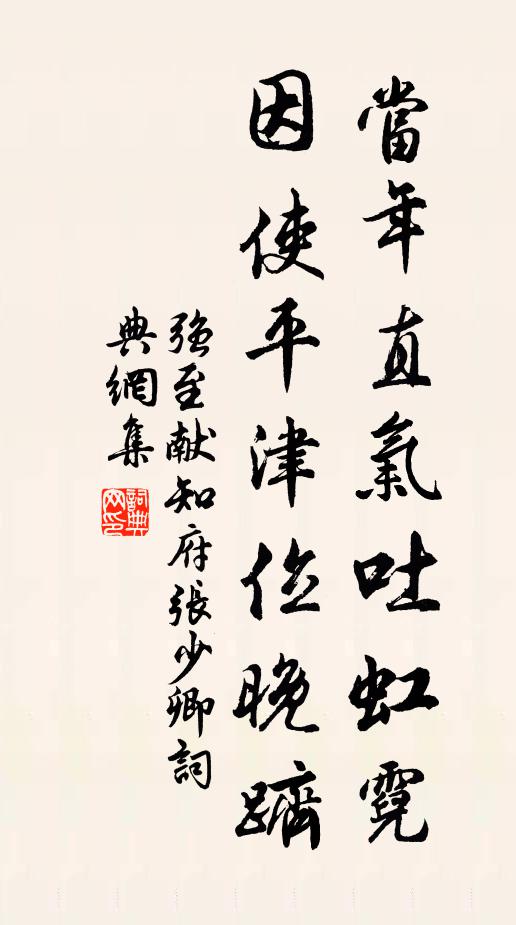 當年直氣吐虹霓
因使平津位晚躋
強至献知府張少卿詞
典網集
詞典網印